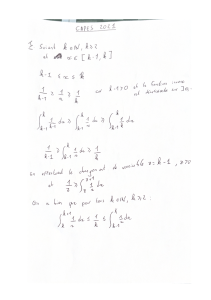 CAPES 2021
Soient k ∈ ℕ, k ≥ 2
et x ∈ [k-1, k]
k-1 ≤ x ≤ k
1/(k-1) ≥ 1/x ≥ 1/k car k-1 > 0 et la fonction inverse
est décroissante sur
∫_{k-1}^{k} 1/(k-1) dx ≥ ∫_{k-1}^{k} 1/x dx ≥ ∫_{k-1}^{k} 1/k dx
1/(k-1) ≥ ∫_{k-1}^{k} 1/x dx ≥ 1/k
En effectuant le changement de variable
et 1/k ≥ ∫_{k}^{k+1} 1/x dx
On a bien que pour tout k ∈ ℕ, k ≥ 2 :
∫_{k}^{k+1} 1/x dx ≤ 1/k ≤ ∫_{k-1}^{k} 1/x dx